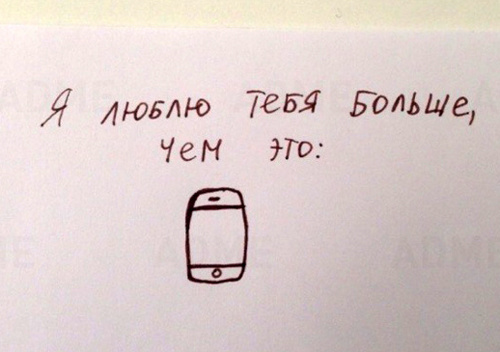 Я ЛЮБЛЮ ТЕБЯ БОЛЬШЕ,
ЧЕМ ЭТО:
ADME
ADME
ADME